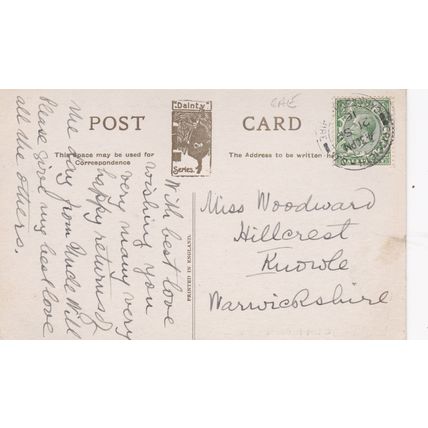 CAE
"Dainty"
Series.
POST CARD
This space may be used for
Correspondence
The Address to be written
PRINTED IN ENGLAND.
With best love
wishing you
very many very
happy returns of
the day from Uncle Will
Please give my best love
all the others.
Miss Woodward
Hillcrest
Knowle
Warwickshire